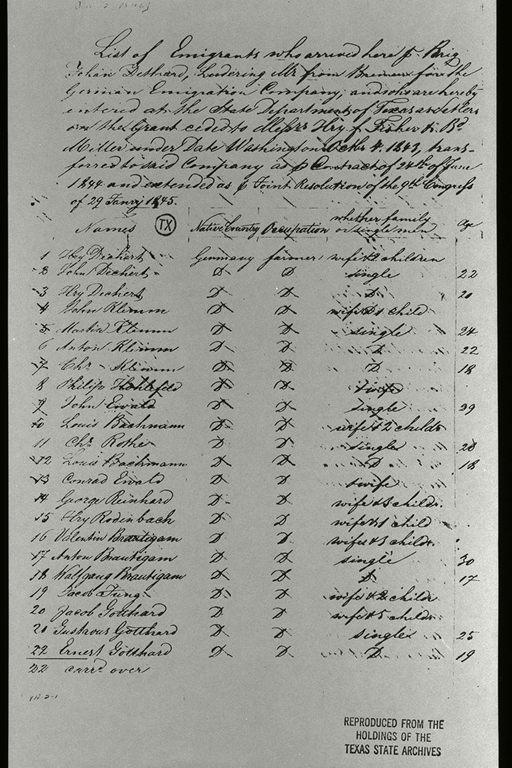 List of Emigrants who arrived here pr. Brig
Johan Dethard, Lüdering Mr. from Bremen for the
German Emigration Company, and who are hereby
entered at the State Department of Texas as settlers
on the Grant ceded to Messrs Hry. F. Fisher & Bd.
Miller under Date Washington 4, 1843, trans-
ferred to said Company as pr Contract of 24th of June
1844 and extended as pr Joint Resolution of the 9th Congress
of 29 Janry 1845.
Names TX Native Country Occupation whether family or single men Age
1 Hry Dechert Germany farmer wife & children
2 John Dechert D D single 22
3 Hry Dechert D D D 20
4 John Klemm D D wife & 1 child
5 Martin Klemm D D single 24
6 Anton Klemm D D D 22
7 Chr. Klemm D D D 18
8 Philip D D wife
9 John Ewald D D single 29
10 Louis Bachmann D D wife & 2 childr.
11 Chr. Rothe D D single 28
12 Louis Bachmann D D D 18
13 Conrad Ewald D D wife
14 George Reinhard D D wife & 3 childr.
15 Hry Rodenbach D D wife & 1 child
16 Valentin Brautigam D D wife & 3 childr.
17 Anton Brautigam D D single 30
18 Wolfgang Brautigam D D D 17
19 Jacob Jung D D wife & 2 childr
20 Jacob Gotthard D D wife & 5 childr.
21 Gustavus Gotthard D D single 25
22 Ernest Gotthard D D D 19
22 carrd over
REPRODUCED FROM THE
HOLDINGS OF THE
TEXAS STATE ARCHIVES